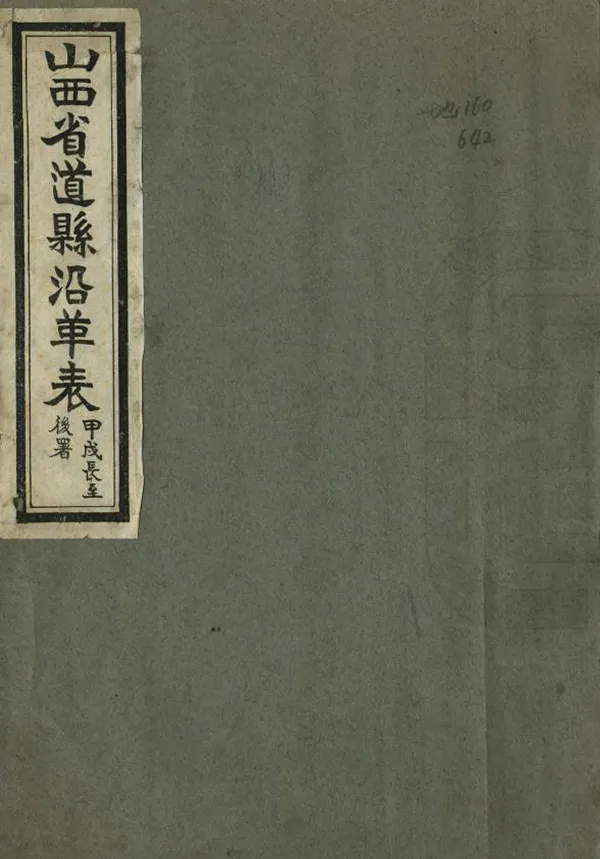 山西省道縣沿革表
甲戌長至
後署
160
642